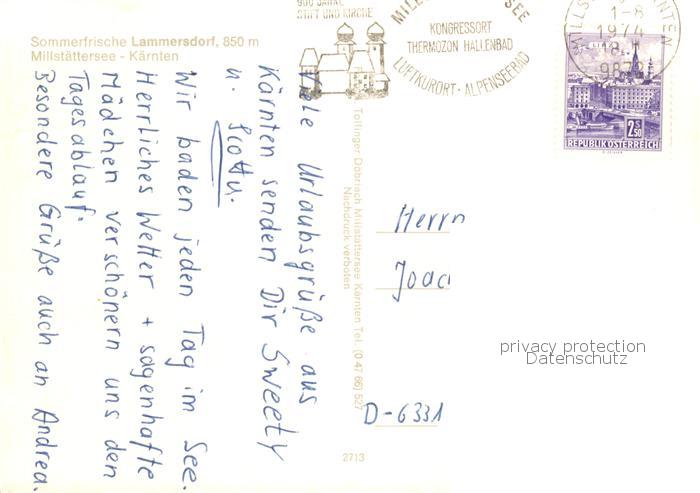 Sommerfrische Lammersdorf, 850 m
Millstättersee - Kärnten
900 JAHRE
STIFT UND KIRCHE
KONGRESSORT
THERMOZON HALLENBAD
LUFTKURORT - ALPENSEEBAD
1-8
1974
18
987
LINZ
2S50
REPUBLIK ÖSTERREICH
Viele Urlaubsgrüße aus
Kärnten senden Dir Sweety
u. Scotty.
Wir baden jeden Tag im See.
Herrliches Wetter + sagenhafte
Mädchen verschönern uns den
Tagesablauf.
Besondere Grüße auch an Andrea.
Tollinger Döbriach Millstättersee Kärnten Tel. (0 47 66) 527
Nachdruck verboten
Herrn
Joac
D-6331
privacy protection
Datenschutz
2713